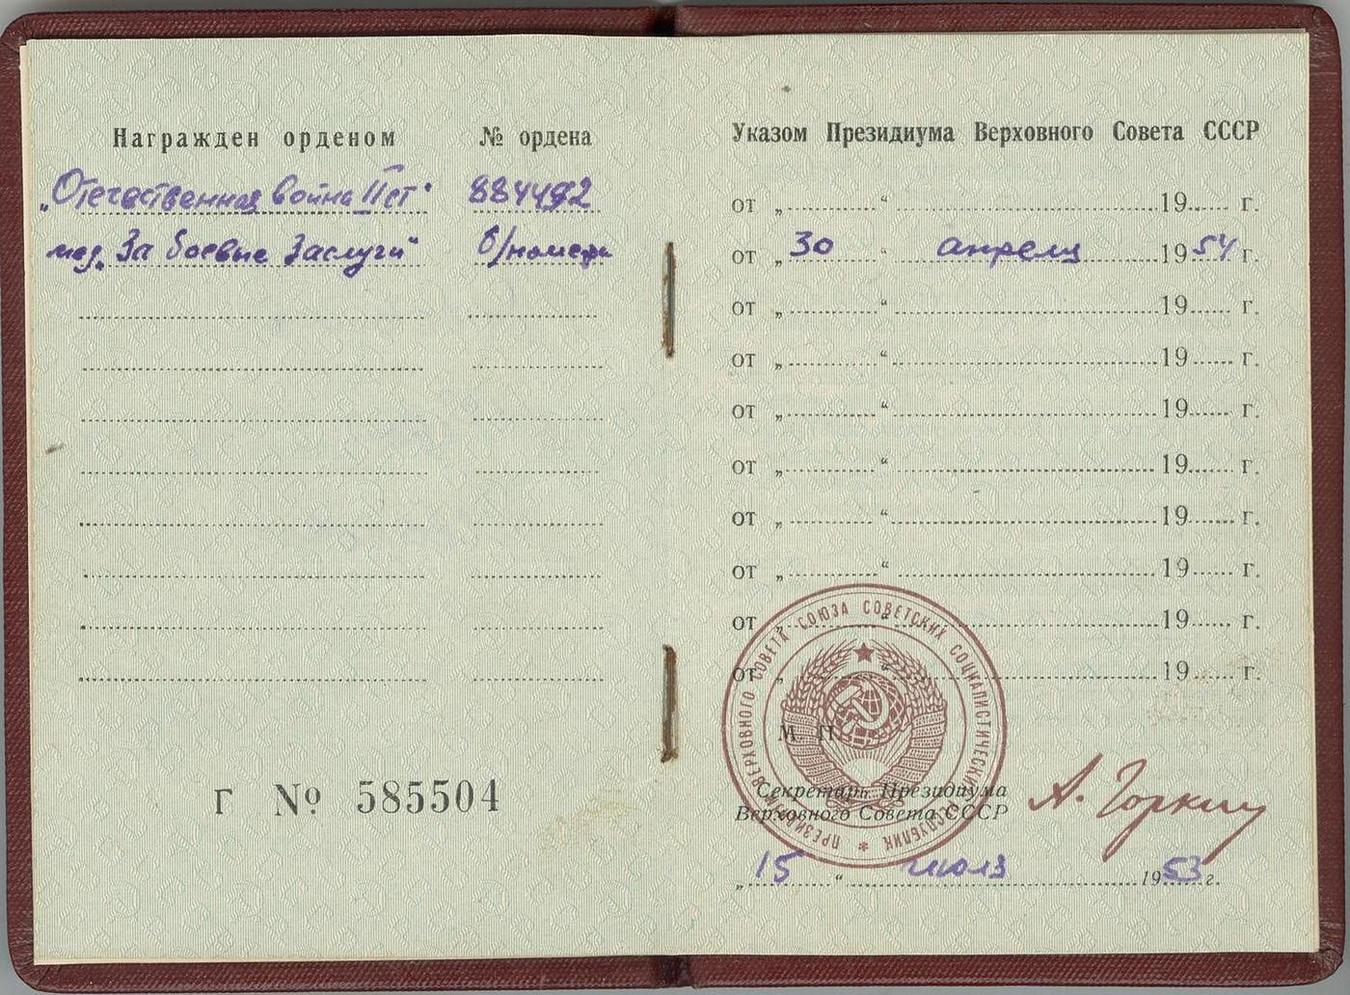 Награжден орденом № ордена
„Отечественная война II ст“ 884492
мед. За боевые заслуги“ б/номера
Г № 585504
Указом Президиума Верховного Совета СССР
от „ “ 19 г.
от „30“ апреля 1954 г.
от „ “ 19 г.
от „ “ 19 г.
от „ “ 19 г.
от „ “ 19 г.
от „ “ 19 г.
от „ “ 19 г.
от „ “ 19 г.
от „ “ 19 г.
М. П.
ПРЕЗИДИУМ ВЕРХОВНОГО СОВЕТА СОЮЗА СОВЕТСКИХ СОЦИАЛИСТИЧЕСКИХ РЕСПУБЛИК
Секретарь Президиума
Верховного Совета СССР
А. Горкин
„15“ июля 1953 г.